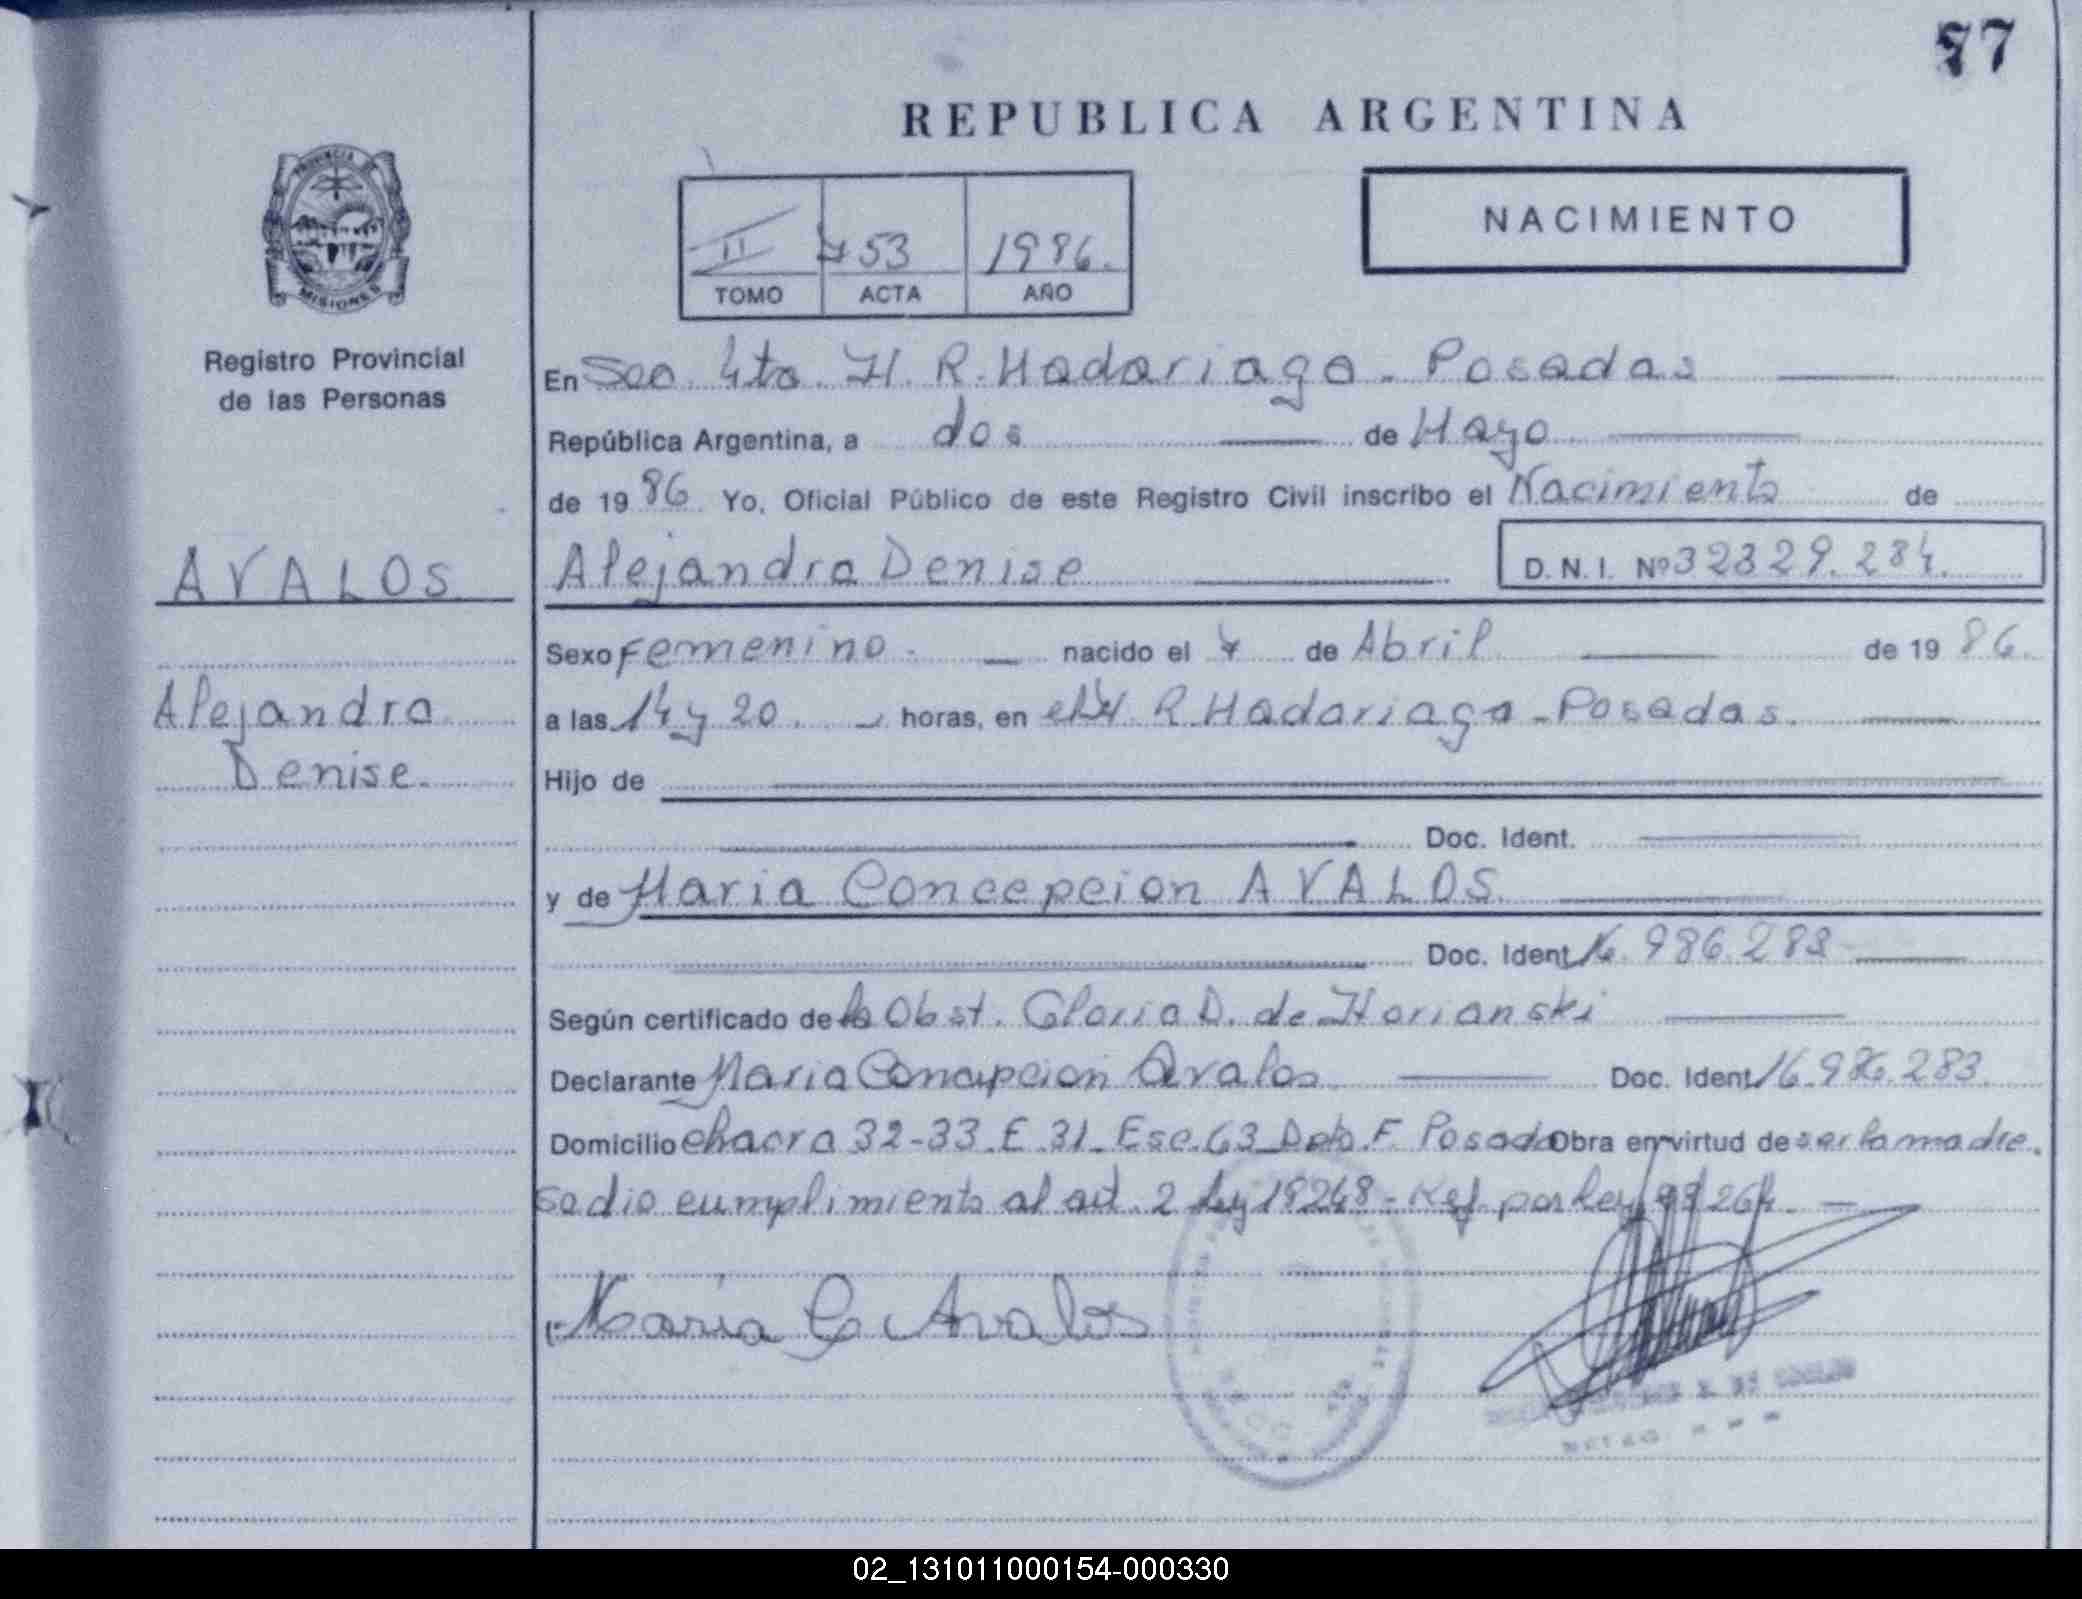 77
REPUBLICA ARGENTINA
PROVINCIA DE
MISIONES
Registro Provincial
de las Personas
II 753 1986.
TOMO ACTA AÑO
NACIMIENTO
En Sec. 4ta. H. R. Madariaga - Posadas
República Argentina, a dos de Mayo
de 1986. Yo, Oficial Público de este Registro Civil inscribo el Nacimiento de
AVALOS
Alejandra Denise D.N.I. Nº 32329.284.
Sexo Femenino. nacido el 7 de Abril de 1986.
Alejandra
Denise.
a las 14 y 20. horas, en el H. R. Madariaga - Posadas.
Hijo de
Doc. Ident.
y de Maria Concepcion AVALOS.
Doc. Ident. 16.986.283
Según certificado de la Obst. Gloria D. de Horianski
Declarante Maria Concepcion Avalos Doc. Ident. 16.986.283
Domicilio chacra 32-33 E 31 Esc. 63 Dpto. F. Posadas Obra en virtud de ser la madre.
se dio cumplimiento al art. 2 Ley 18248 - Ref. por Ley 23264.
Maria C Avalos
02_131011000154-000330